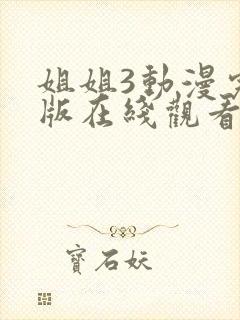 姐姐3動漫完
版在綫觀看
寶石妖